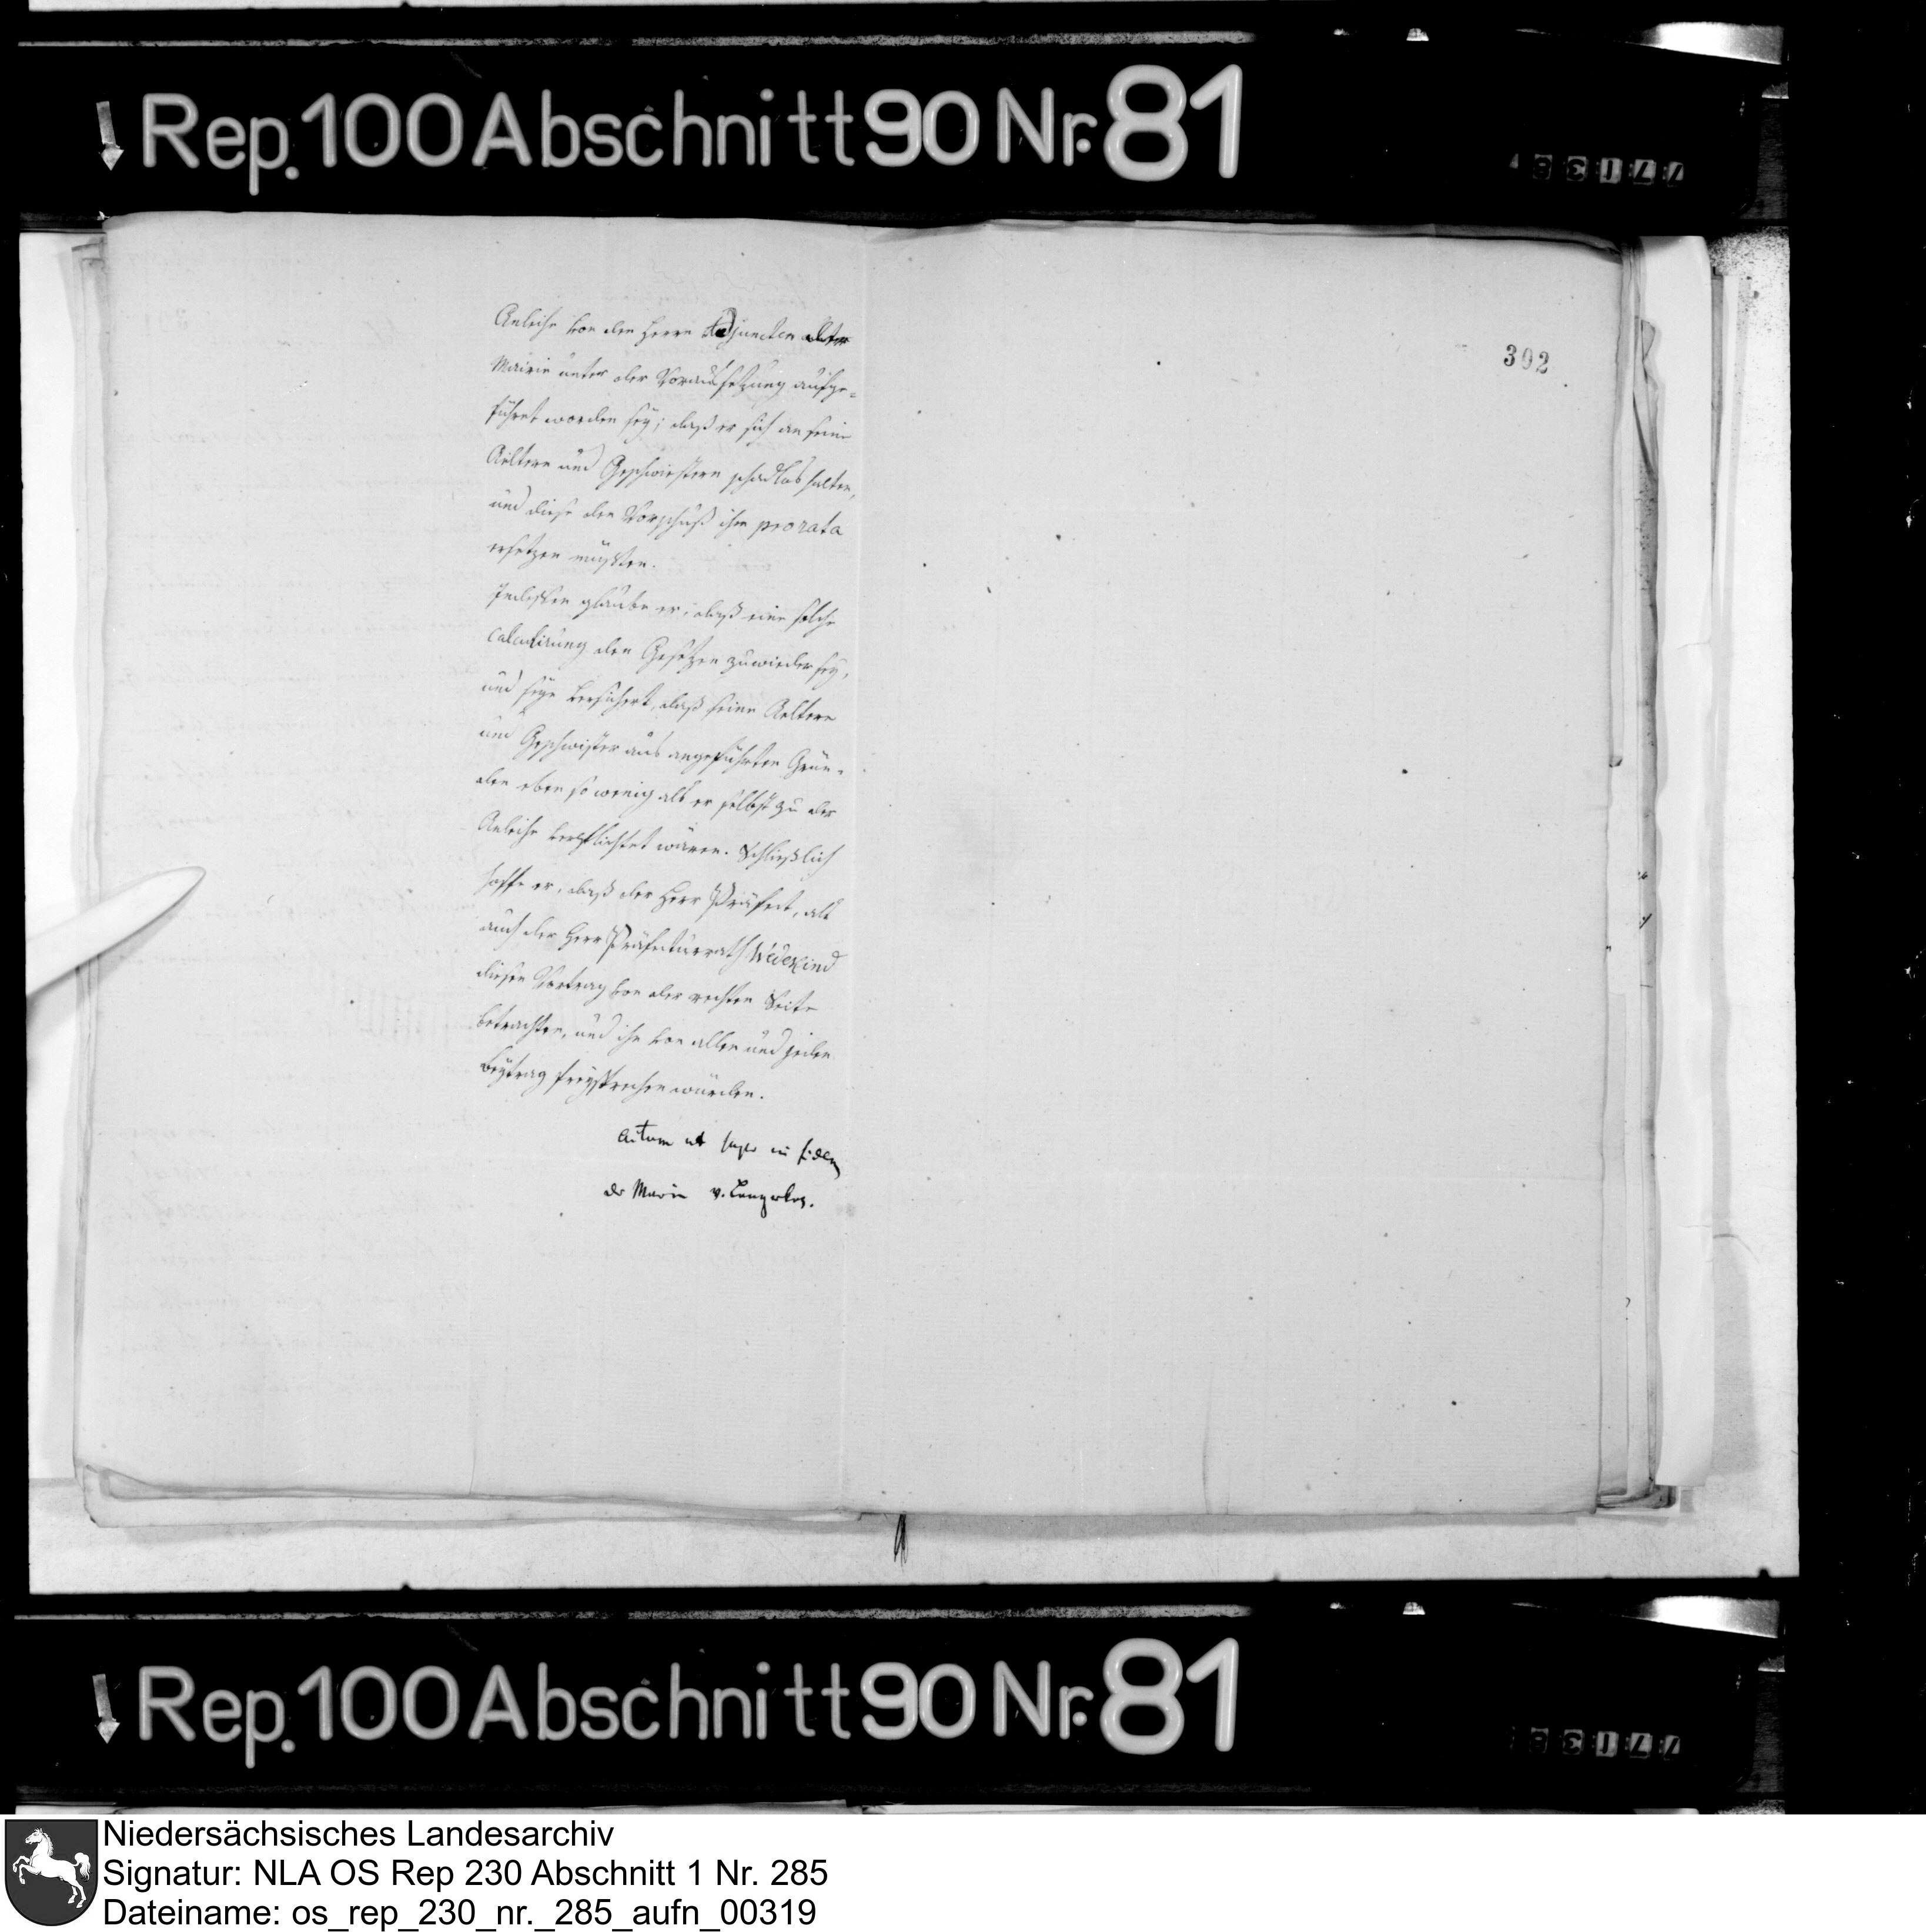 Rep. 100 Abschnitt 90 Nr. 81
302
Anleihe von den Herrn Adjuncten der
Mairie unter der Voraussetzung aufge-
führt worden sey; daß er sich an seine
Aeltern und Geschwistern schadlos halten,
und diese den Vorschuß ihm prorata
ersetzen müßten.
Indessen glaube er, daß eine solche
Calculirung den Gesetzen zuwieder sey,
und seye versichert, daß seine Aeltern
und Geschwister aus angeführten Grün-
den eben so wenig als er selbst zu der
Anleihe verpflichtet wären. Schließlich
hoffe er, daß der Herr Präfect, als
auch der Herr Präfecturrath Wedekind
diesen Vortrag von der rechten Seite
betrachten, und ihn von allen und jeden
Beytrag freysprechen würden.
Actum ut supra in fidem
der Maire v. Lengerke.
Rep. 100 Abschnitt 90 Nr. 81
Niedersächsisches Landesarchiv
Signatur: NLA OS Rep 230 Abschnitt 1 Nr. 285
Dateiname: os_rep_230_nr._285_aufn_00319